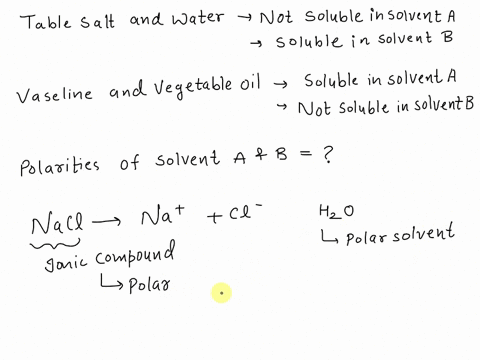 Table salt and water → Not soluble in solvent A
→ soluble in solvent B
Vaseline and vegetable oil → Soluble in solvent A
→ Not soluble in solvent B
Polarities of solvent A & B = ?
NaCl → Na⁺ + Cl⁻
H₂O
↳ polar solvent
Ionic compound
↳ Polar